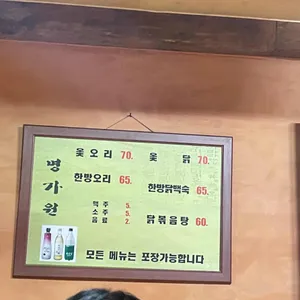 명가원
옻오리 70. 옻 닭 70.
한방오리 65. 한방닭백숙 65.
맥주 5.
소주 5.
음료 2.
닭볶음탕 60.
모든 메뉴는 포장가능합니다